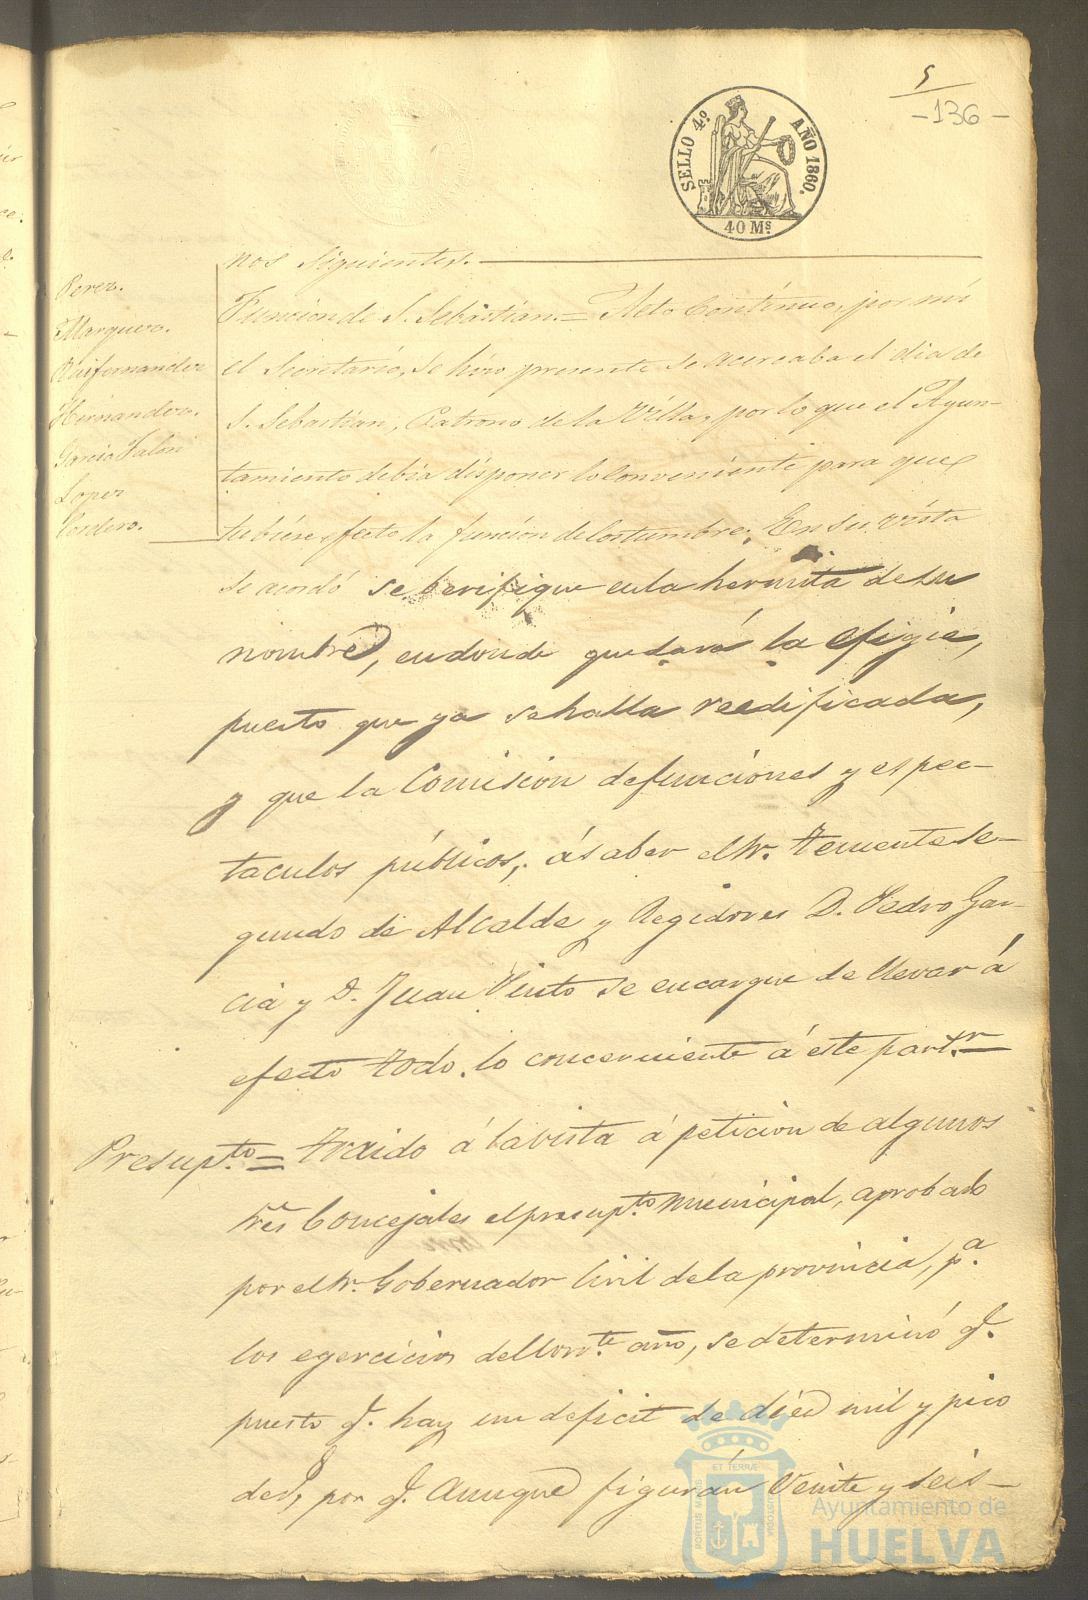 5
-136-
SELLO 4.º AÑO 1860.
40 Mˢ
nos siguientes.
Perez.
Marquez.
Ruifernandez
Hernandez.
Garcia Talon
Lopez
Cordero.
Funcion de S. Sebastian.= Acto Continuo, por mi
el Secretario, se hizo presente se acercaba el dia de
S. Sebastian, Patrono de la Villa, por lo que el Ayun-
tamiento debia disponer lo conveniente para que
tubiese efecto la funcion de Costumbre; En su vista
se acordó se berifique en la hermita de su
nombre, en donde quedará la efigie,
puesto que ya se halla reedificada,
y que la Comision de funciones y espec-
taculos públicos, á saber el Sr. Teniente se-
gundo de Alcalde y Regidores D. Pedro Gar-
cia y D. Juan Pinto se encargue de llevar á
efecto todo lo concerniente á este part.ʳ
Presup.ᵗᵒ= Traido á la vista á peticion de algunos
Sres Concejales el presup.ᵗᵒ municipal, aprobado
por el Sr. Gobernador Civil de la provincia, p.ᵃ
los egercicios del corr.ᵗᵉ año, se determinó q.
puesto q. hay un deficit de diez mil y pico
de rˢ, por q. aunque figuran Veinte y seis-
PORTUS MARIS ET TERRÆ CUSTODIA
Ayuntamiento de
HUELVA